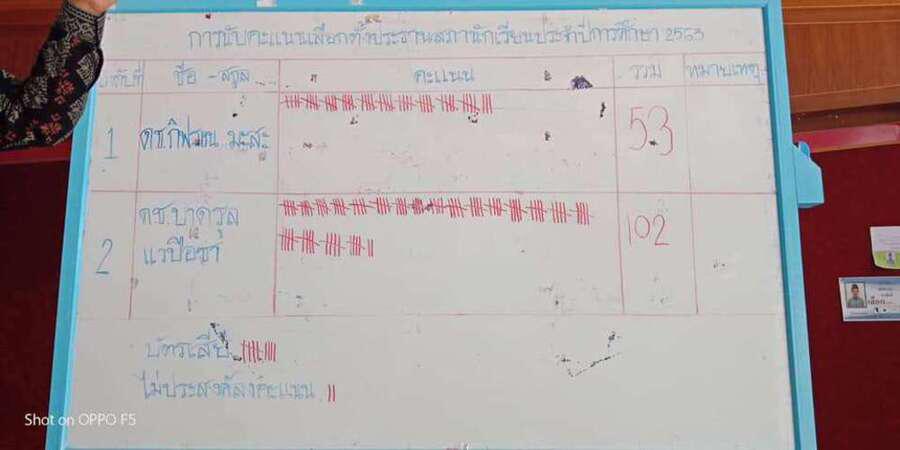 การนับคะแนนเลือกตั้งประธานสภานักเรียนประจำปีการศึกษา 2563
ลำดับที่ ชื่อ - สกุล คะแนน รวม หมายเหตุ
1 ดช. มะสะ 53
2 ดช.บาดรูล 102
แวปือซา
บัตรเสีย
ไม่ประสงค์ลงคะแนน
Shot on OPPO F5